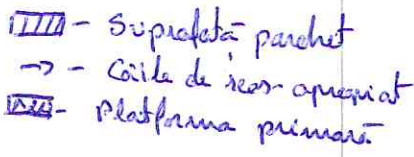 - Suprafată parchet
- Căile de scos-apropiat
- Platforma primară